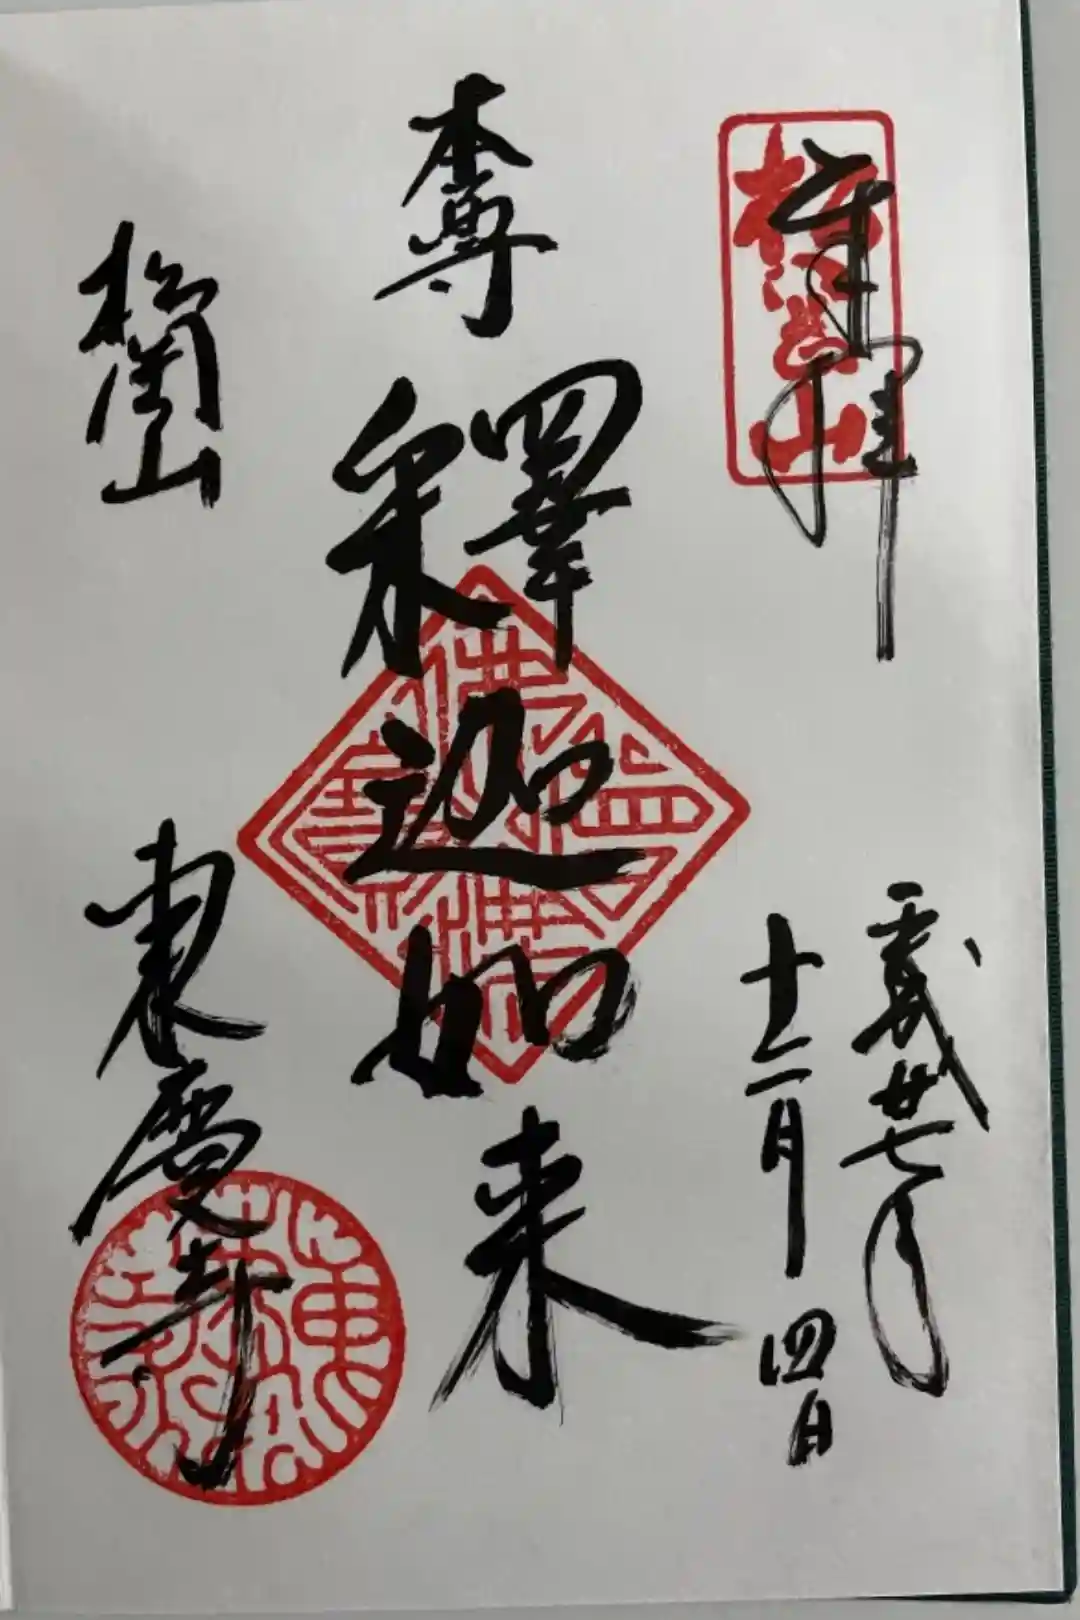 奉拝
松岡山
平成廿七年
十二月四日
本尊
釋迦如来
松岡山
東慶寺